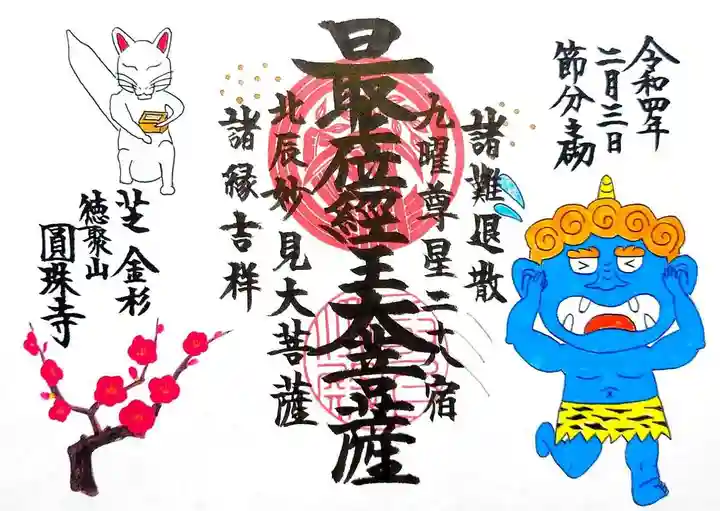 令和四年
二月三日
節分会
諸難退散
九曜尊星二十八宿
最上位經王大菩薩
北辰妙見大菩薩
諸縁吉祥
芝金杉
徳聚山
圓珠寺